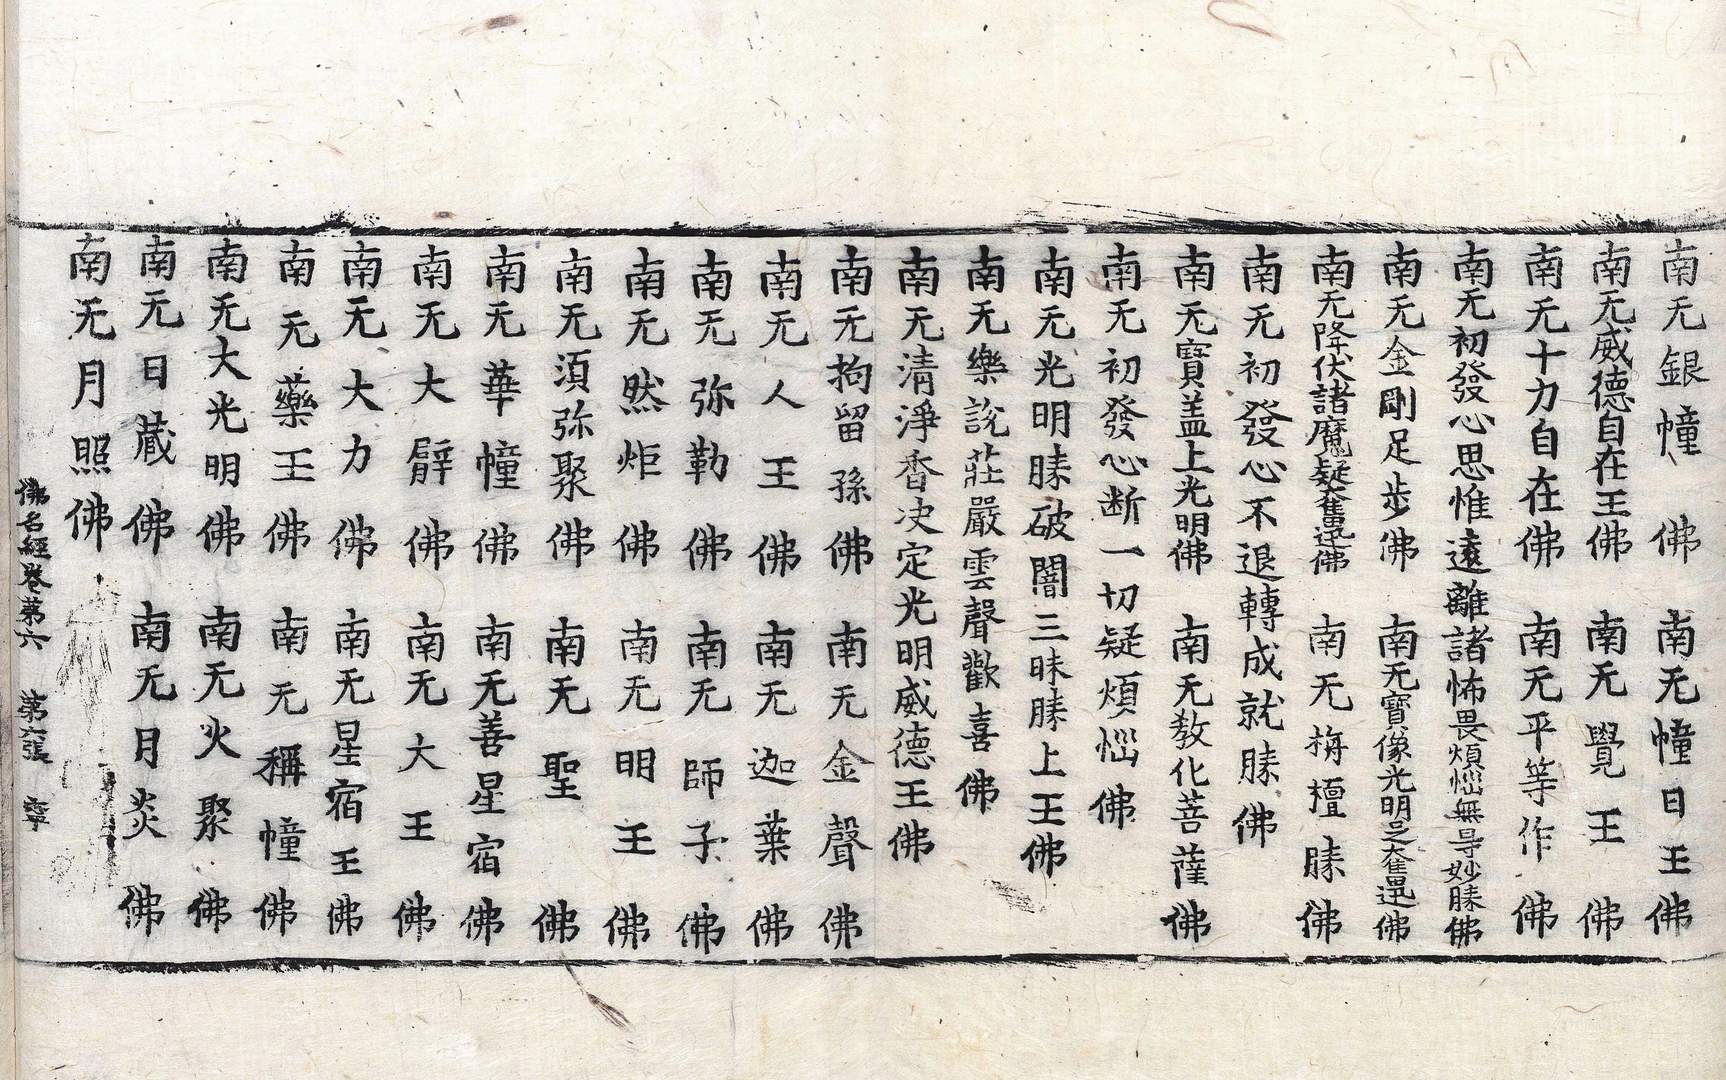 南无銀幢佛　南无幢日王佛
南无威德自在王佛　南无覺王佛
南无十力自在佛　南无平等作佛
南无初發心思惟遠離諸怖畏煩惱無㝵妙勝佛
南无金剛足步佛　南无寶像光明足奮迅佛
南无降伏諸魔疑奮迅佛　南无栴檀勝佛
南无初發心不退轉成就勝佛
南无寶盖上光明佛　南无教化菩薩佛
南无初發心断一切疑煩惱佛
南无光明勝破闇三昧勝上王佛
南无樂說莊嚴雲聲歡喜佛
南无清淨香决定光明威德王佛
南无拘留孫佛　南无金聲佛
南无人王佛　南无迦葉佛
南无弥勒佛　南无師子佛
南无然炬佛　南无明王佛
南无須弥聚佛　南无聖佛
南无華幢佛　南无善星宿佛
南无大臂佛　南无大王佛
南无大力佛　南无星宿王佛
南无藥王佛　南无稱幢佛
南无大光明佛　南无火聚佛
南无日藏佛　南无月炎佛
南无月照佛
佛名經卷第六　第六張